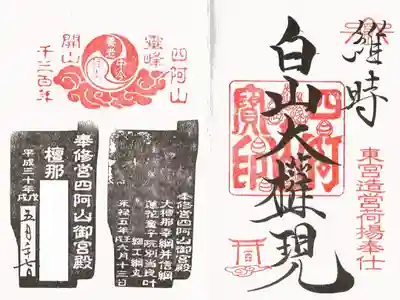 維時
白山大權現
四阿
寶印
東宮造営荷揚奉仕
四阿山
靈峰
開山
千三百年
中今
養老
奉修営四阿山御宮殿
大檀那幸綱并信綱
蓮花童子院別当良叶
細工綱丸
永禄五年壬戌六月十三日
奉修営四阿山御宮殿
檀那
平成三十年戊戌
五月